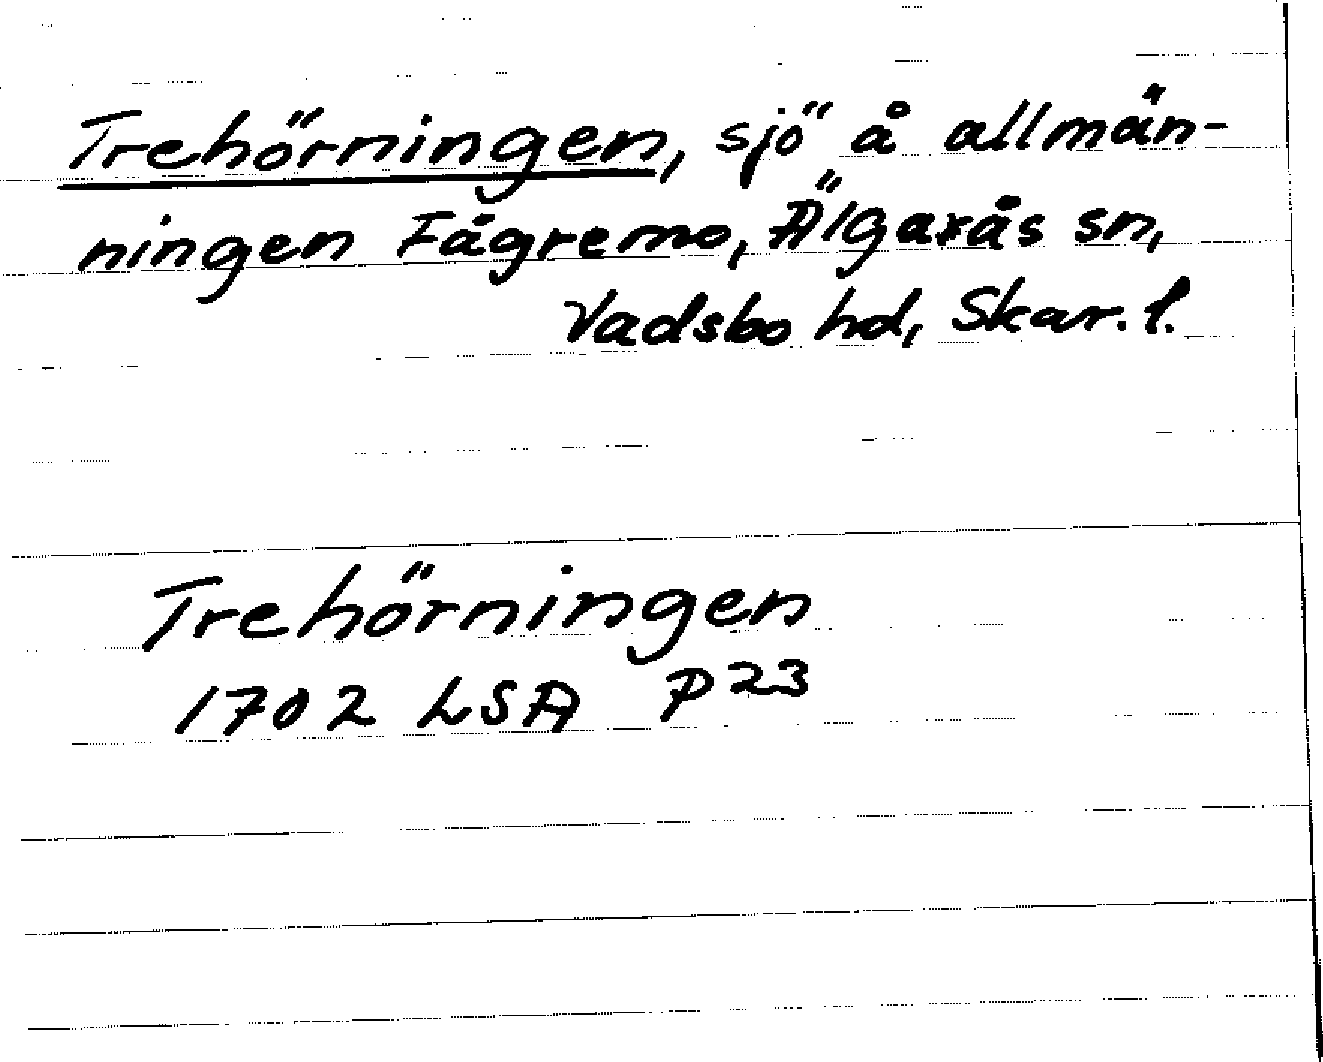 Trehörningen, sjö å allmän-
ningen Fägremo, Älgarås sn,
Vadsbo hd, Skar. l.
Trehörningen
1702 LSA P 23